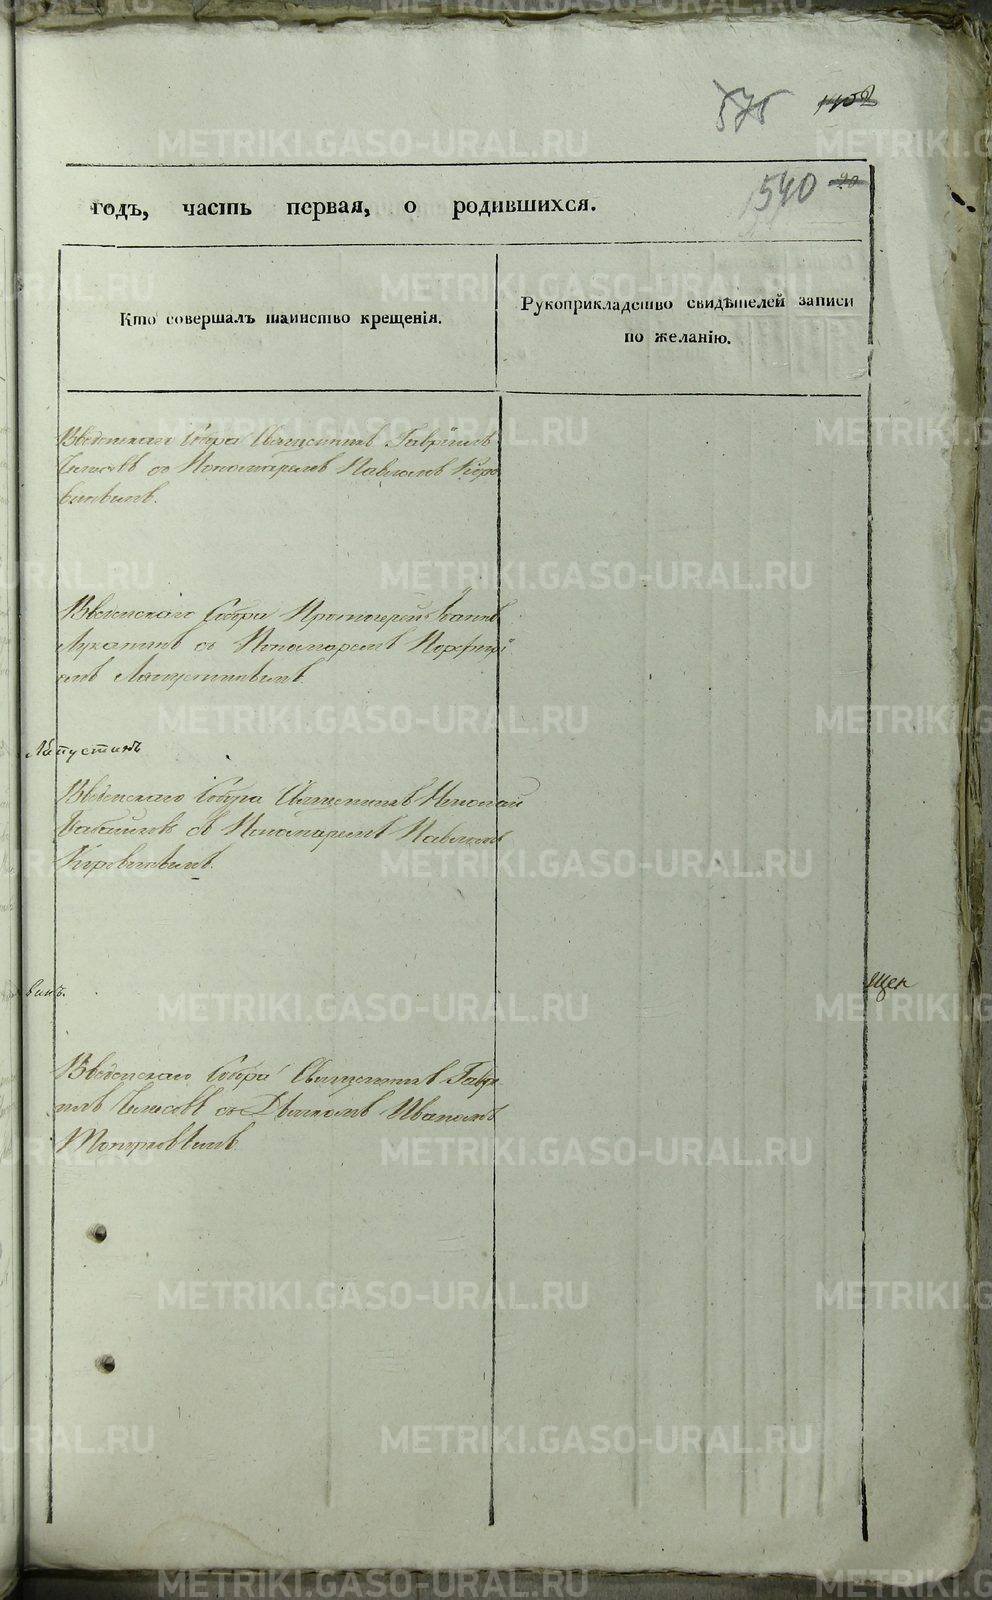 575 1402
540
годъ, часть первая, о родившихся.
Кто совершалъ таинство крещенія.
Рукоприкладство свидѣтелей записи
по желанію.
Введенскаго Собора Священникъ Гавріилъ
съ Пономаремъ Павломъ Коро
виннымъ.
Введенскаго Собора Протоіерей Іоаннъ
Луканинъ съ Пономаремъ Порфирі
емъ Лапустинымъ
Лапустинъ
Введенскаго Собора Священникъ Николай
съ Пономаремъ Павломъ
винъ.
щен
Введенскаго Собора Священникъ Гаврі
илъ съ Дьякономъ Иваномъ
METRIKI.GASO-URAL.RU